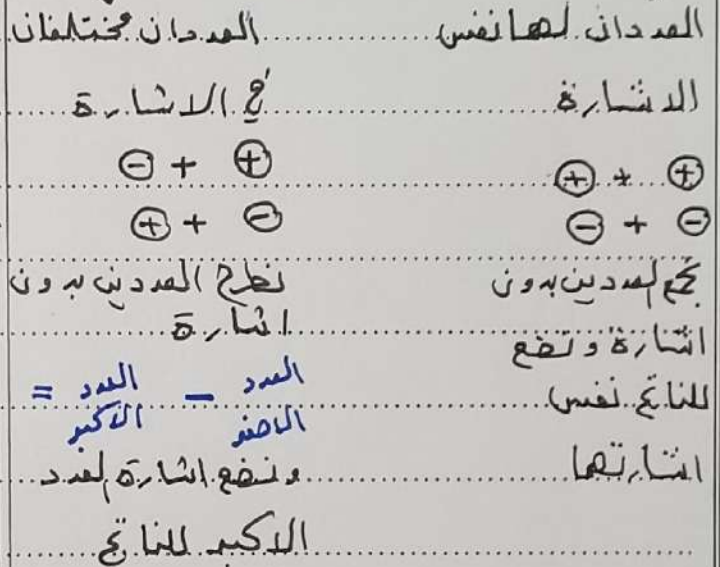 العددان لهما نفس
الاشارة
⊕ + ⊕
⊖ + ⊖
نجمع العددين بدون
اشارة ونضع
للناتج نفس
اشارتهما
العددان مختلفان
في الاشارة
⊕ + ⊖
⊖ + ⊕
نطرح العددين بدون
اشارة
العدد الاصغر − العدد الاكبر =
ونضع اشارة العدد
الاكبر للناتج